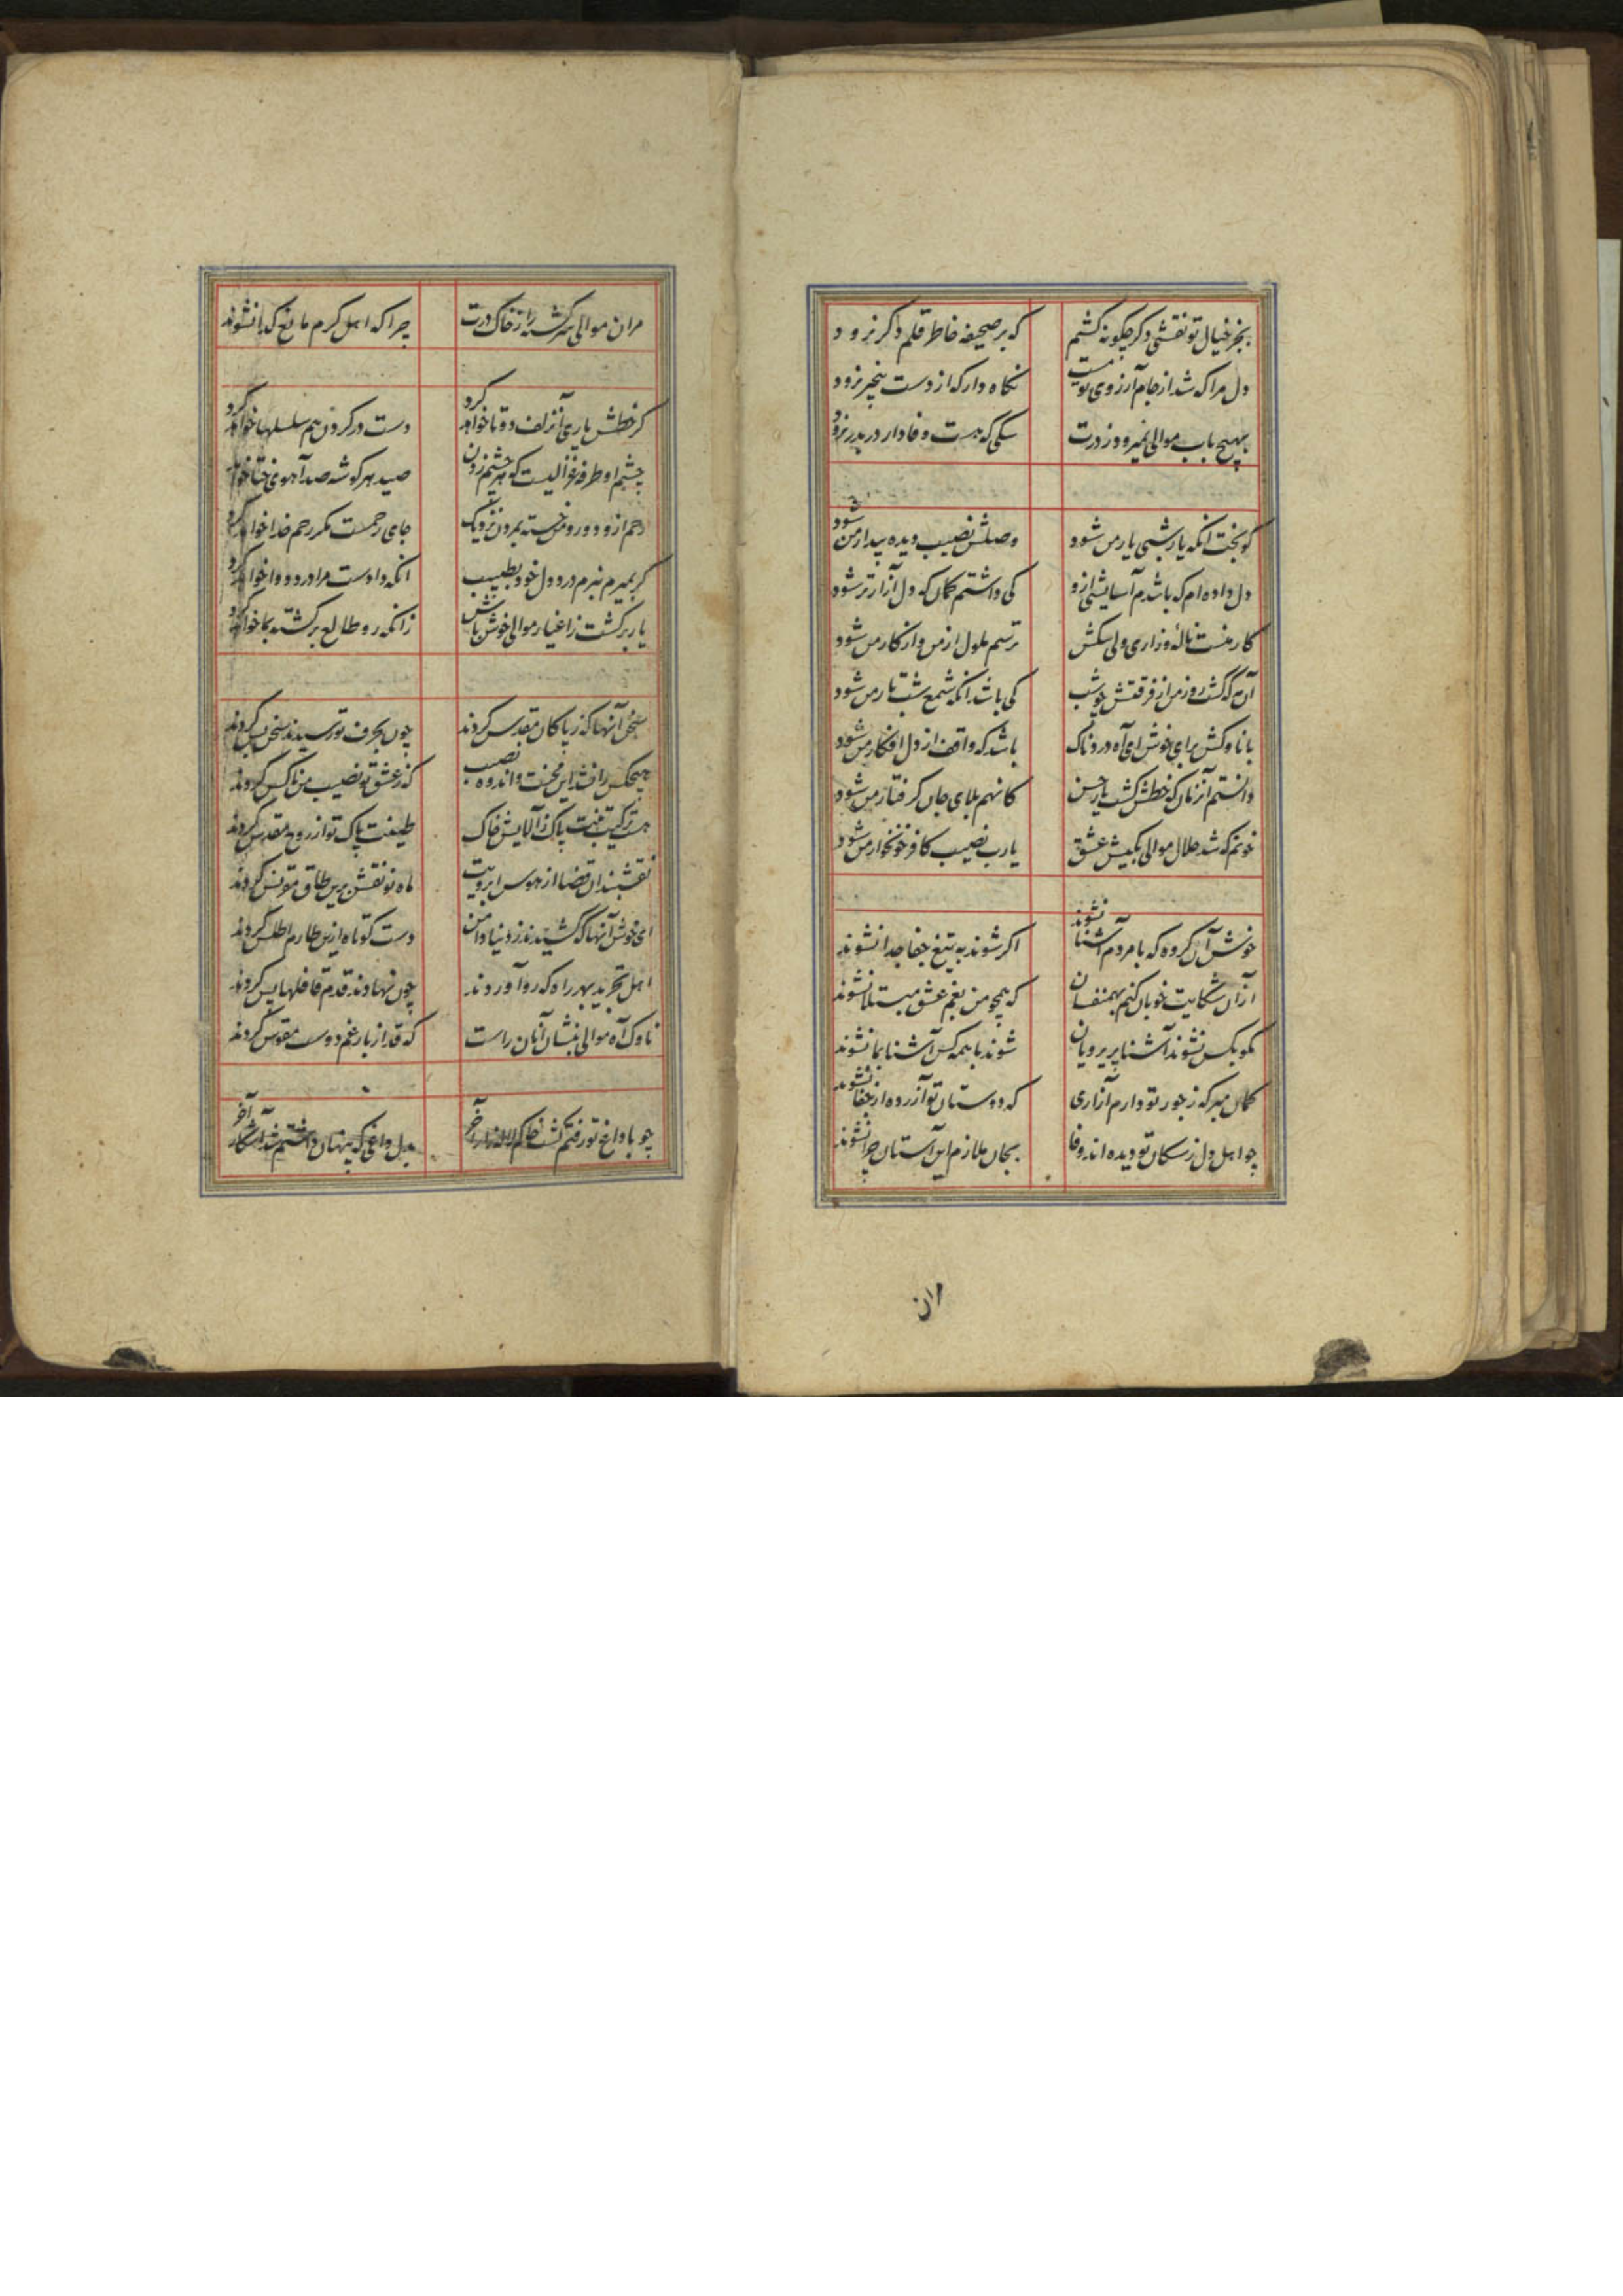 بجز خیال تو نقشی دکر چکونه کشم که بر صحیفه خاطر قلم دکر نرود
دل مرا که شد از جام آرزوی تو مست نکاه دار که از دست بیخبر نرود
بهیچ باب موالی نمیرود ز درت سکی که هست وفادار در بدر نرود
کو بخت انکه یار شبی یار من شود وصلش نصیب دیده بیدار من شود
دل داده ام که باشدم آسایشی ازو کی داشتم کمان که دل آزارتر شود
کار منست ناله وزاری ولی سکش ترسم ملول از من و از کار من شود
آن مه که کشت روز من از فرقتش چو شب کی باشد انکه شمع شب تار من شود
با ناوکش برای خوش ای آه دردناک باشد که واقف از دل افکار من شود
دانستم آنزمان که خطش کشت یار حسن کانهم بلای جان کرفتار من شود
خونم که شد حلال موالی بکیش عشق یارب نصیب کافر خونخوار من شود
خوش آن کروه که با مردم آشنا نشوند اکر شوند به تیغ جفا جدا نشوند
ازان شکایت خوبان کنم بهمنفسان که همچو من بغم عشق مبتلا نشوند
مکو بکس نشوند آشنا پریرویان شوند با همه کس آشنا بما نشوند
کمان مبر که ز جور تو دارم آزاری که دوستان تو آزرده از جفا نشوند
چو اهل دل ز سکان تو دیده اند وفا بجان ملازم این آستان چرا نشوند
مران
مران موالی سرکشته را ز خاک درت چرا که اهل کرم مانع کدا نشوند
کر خطش یاری آنزلف دوتا خواهد کرد دست در کردن هم سلسلها خواهد کرد
چشم او طرفه غزالیست که هر چشم زدن صید هر کوشه صد آهوی ختا خواهد
رحم ازو دور و من خسته بمردن نزدیک جای رحمست مکر رحم خدا خواهد کرد
کر بمیرم نبرم درد دل خود بطبیب انکه دادست مرا درد دوا خواهد کرد
یار برکشت ز اغیار موالی خوش باش زانکه رو طالع برکشته بما خواهد کرد
سخن آنها که ز پاکان مقدس کردند چون بحرف تو رسیدند سخن بس کردند
هیچکس را نشد این محنت و اندوه نصیب که ز عشق تو نصیب من ناکس کردند
هست ترکیب تنت پاک ز آلایش خاک طینت پاک تو از روح مقدس کردند
نقشبندان قضا از هوس ابرویت ماه نو نقش برین طاق مقرنس کردند
ای خوش آنها که کشیدند ز دنیا دامن دست کوتاه ازین طارم اطلس کردند
اهل تجرید بهر راه که رو آوردند چون نهادند قدم قافلها پس کردند
ناوک آه موالی بنشان آنان راست که قد از بار غم دوست مقوس کردند
چو با داغ تو رفتم کشت خاکم لاله زار آخر بدل داغی که پنهان داشتم شد آشکار آخر